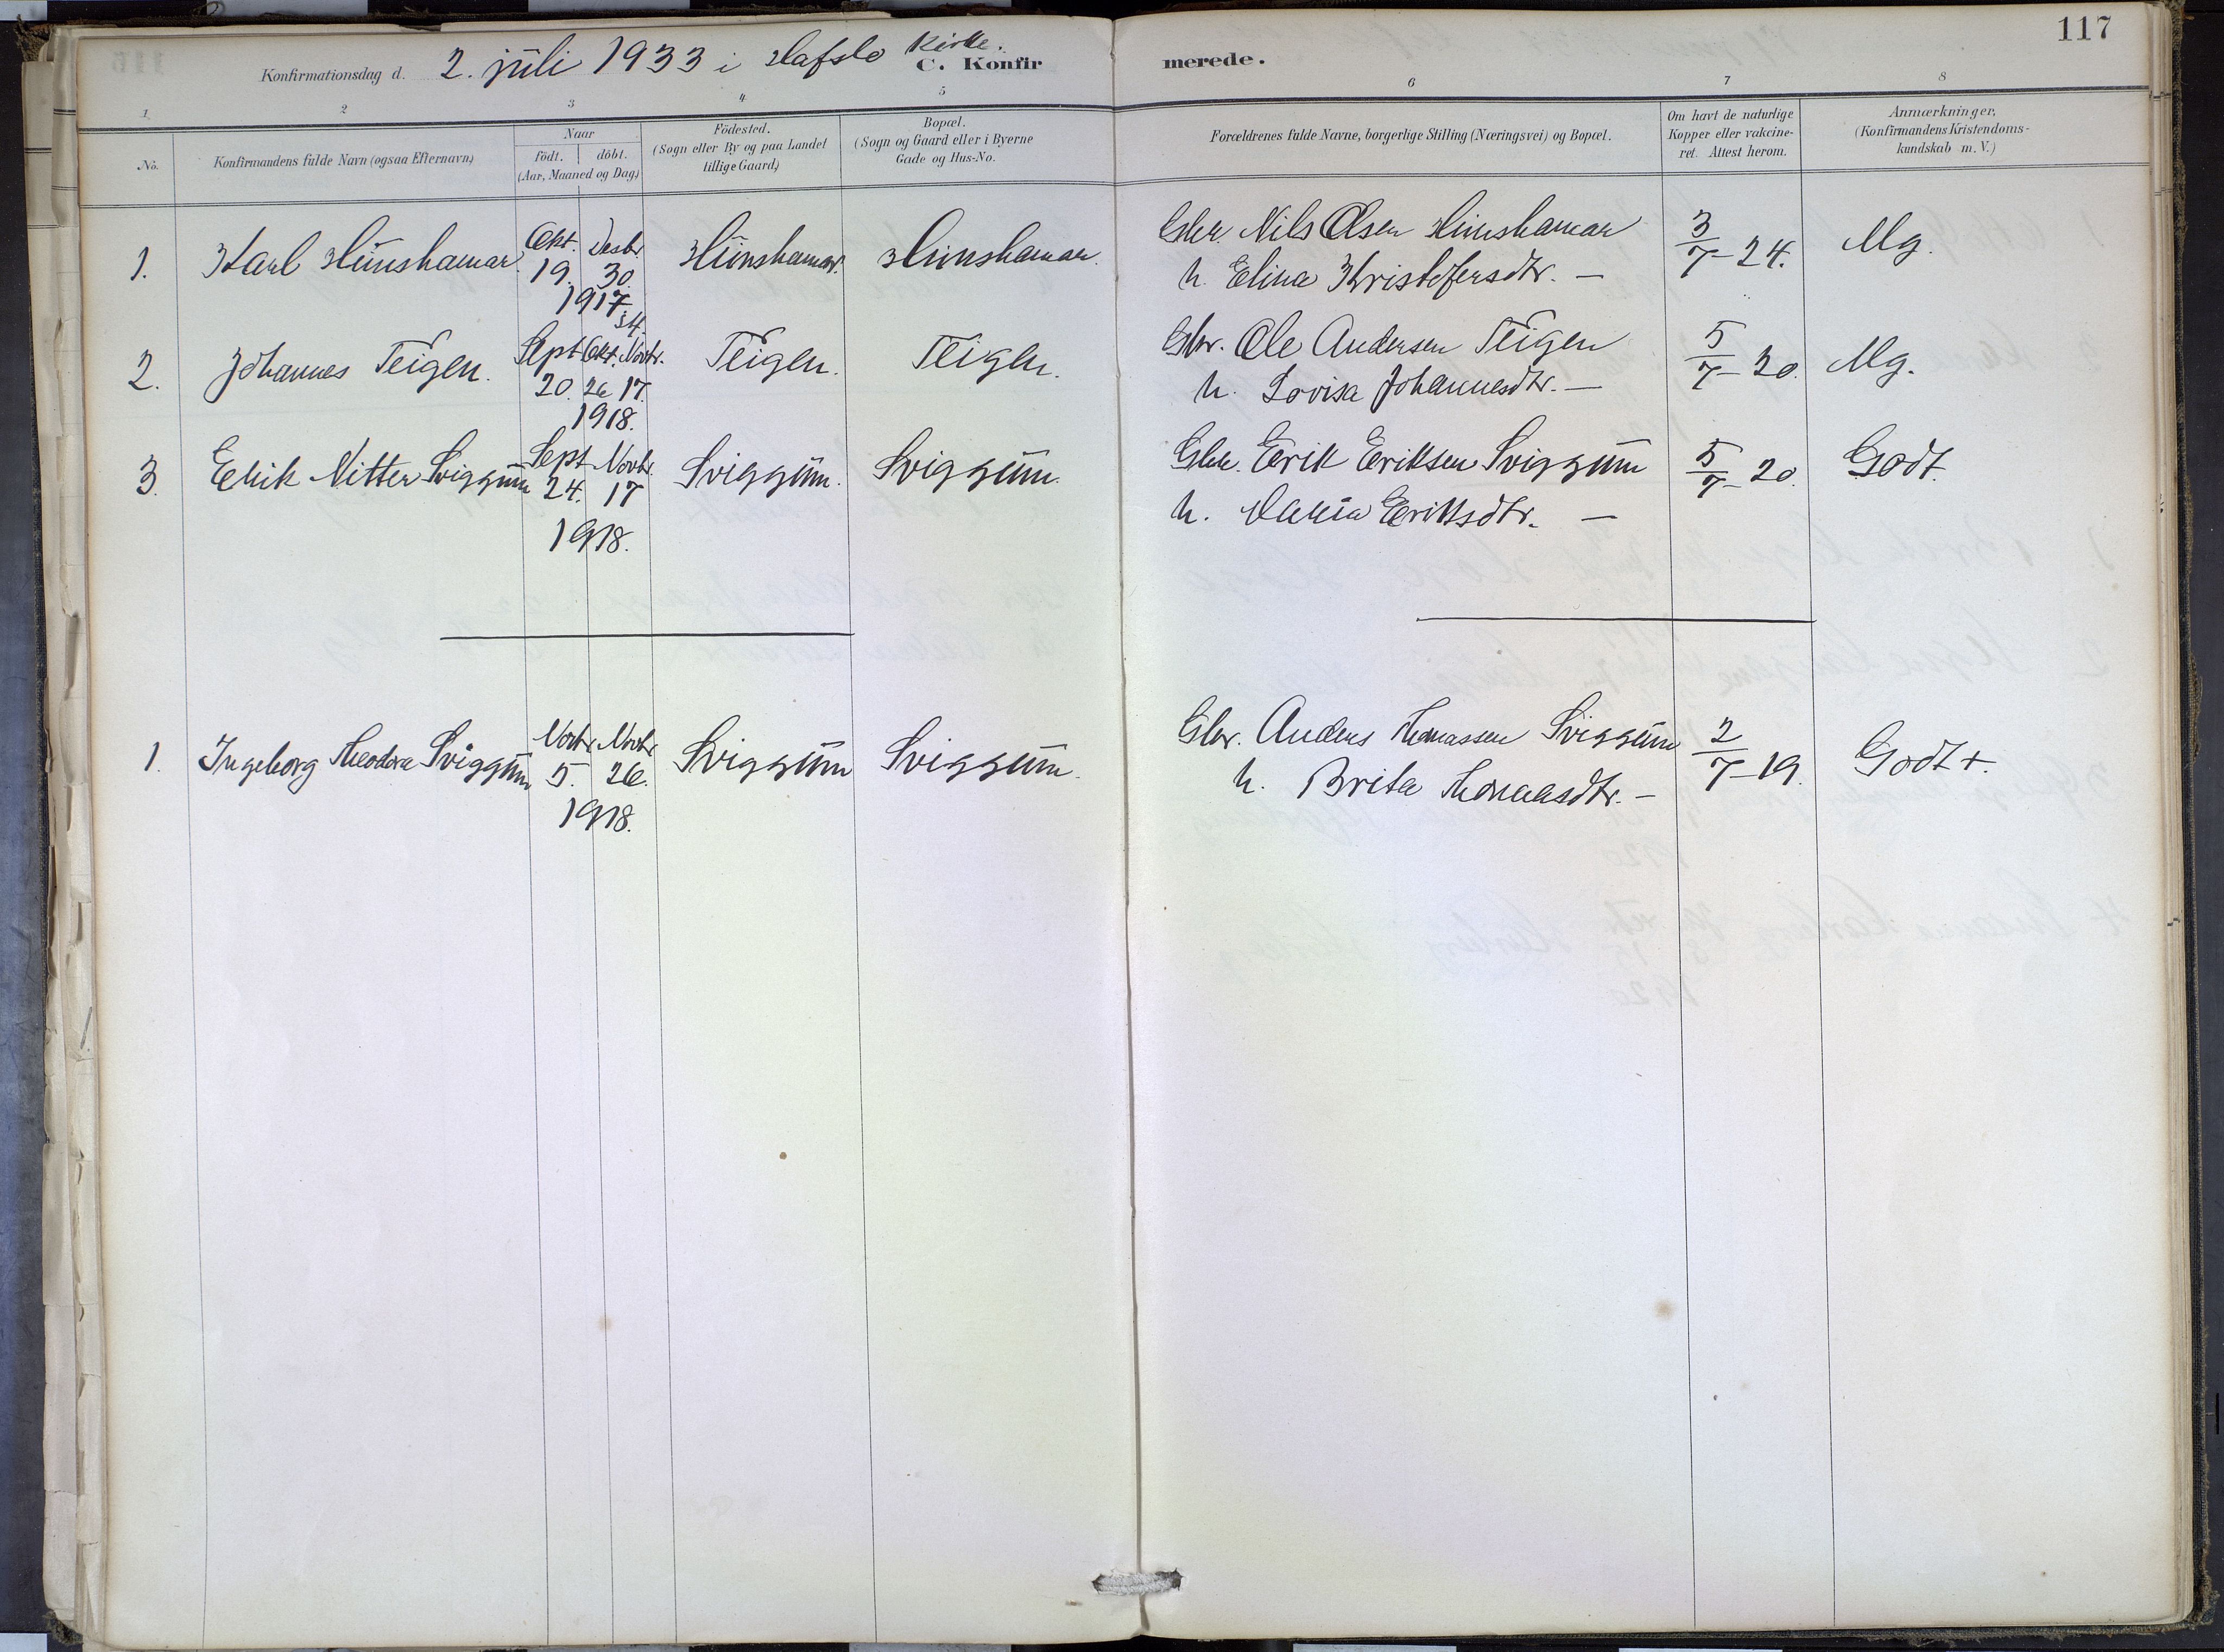 117
Konfirmationsdag d. 2. juli 1933 i Hafslo Kirke.
C. Konfir merede.
1 2 3 4 5 6 7 8
No.
Konfirmandens fulde Navn (ogsaa Efternavn)
Naar
födt. döbt.
(Aar, Maaned og Dag)
Födested.
(Sogn eller By og paa Landet
tillige Gaard)
Bopæl.
(Sogn og Gaard eller i Byerne
Gade og Hus-No.
Forældrenes fulde Navne, borgerlige Stilling (Næringsvei) og Bopæl.
Om havt de naturlige
Kopper eller vakcine-
ret. Attest herom.
Anmærkninger,
(Konfirmandens Kristendoms-
kundskab m. V.)
1. Karl Hunshamar Okt. 19. Desbr. 30. 1917. Hunshamar. Hunshamar.
Gbr. Nils Olsen Hunshamar 3/7-24. Mg.
h. Elina Kristofersdtr. —
2. Johannes Teigen. Sept 20. Okt. 26 Novbr. 17. 1918. Teigen. Teigen.
Gbr. Ole Andersen Teigen 5/7-20. Mg.
h. Lovisa Johannesdtr. —
3. Erik Nitter Sviggum Sept 24. Novbr. 17 1918. Sviggum. Sviggum.
Gbr. Erik Eriksen Sviggum 5/7-20. Godt.
h. Eriksdtr. —
1. Ingeborg Theodora Sviggum Novbr. 5. Novbr 26. 1918. Sviggum Sviggum.
Gbr. Anders Thomassen Sviggum 2/7-19. Godt +.
h. Brita Thomasdtr. —